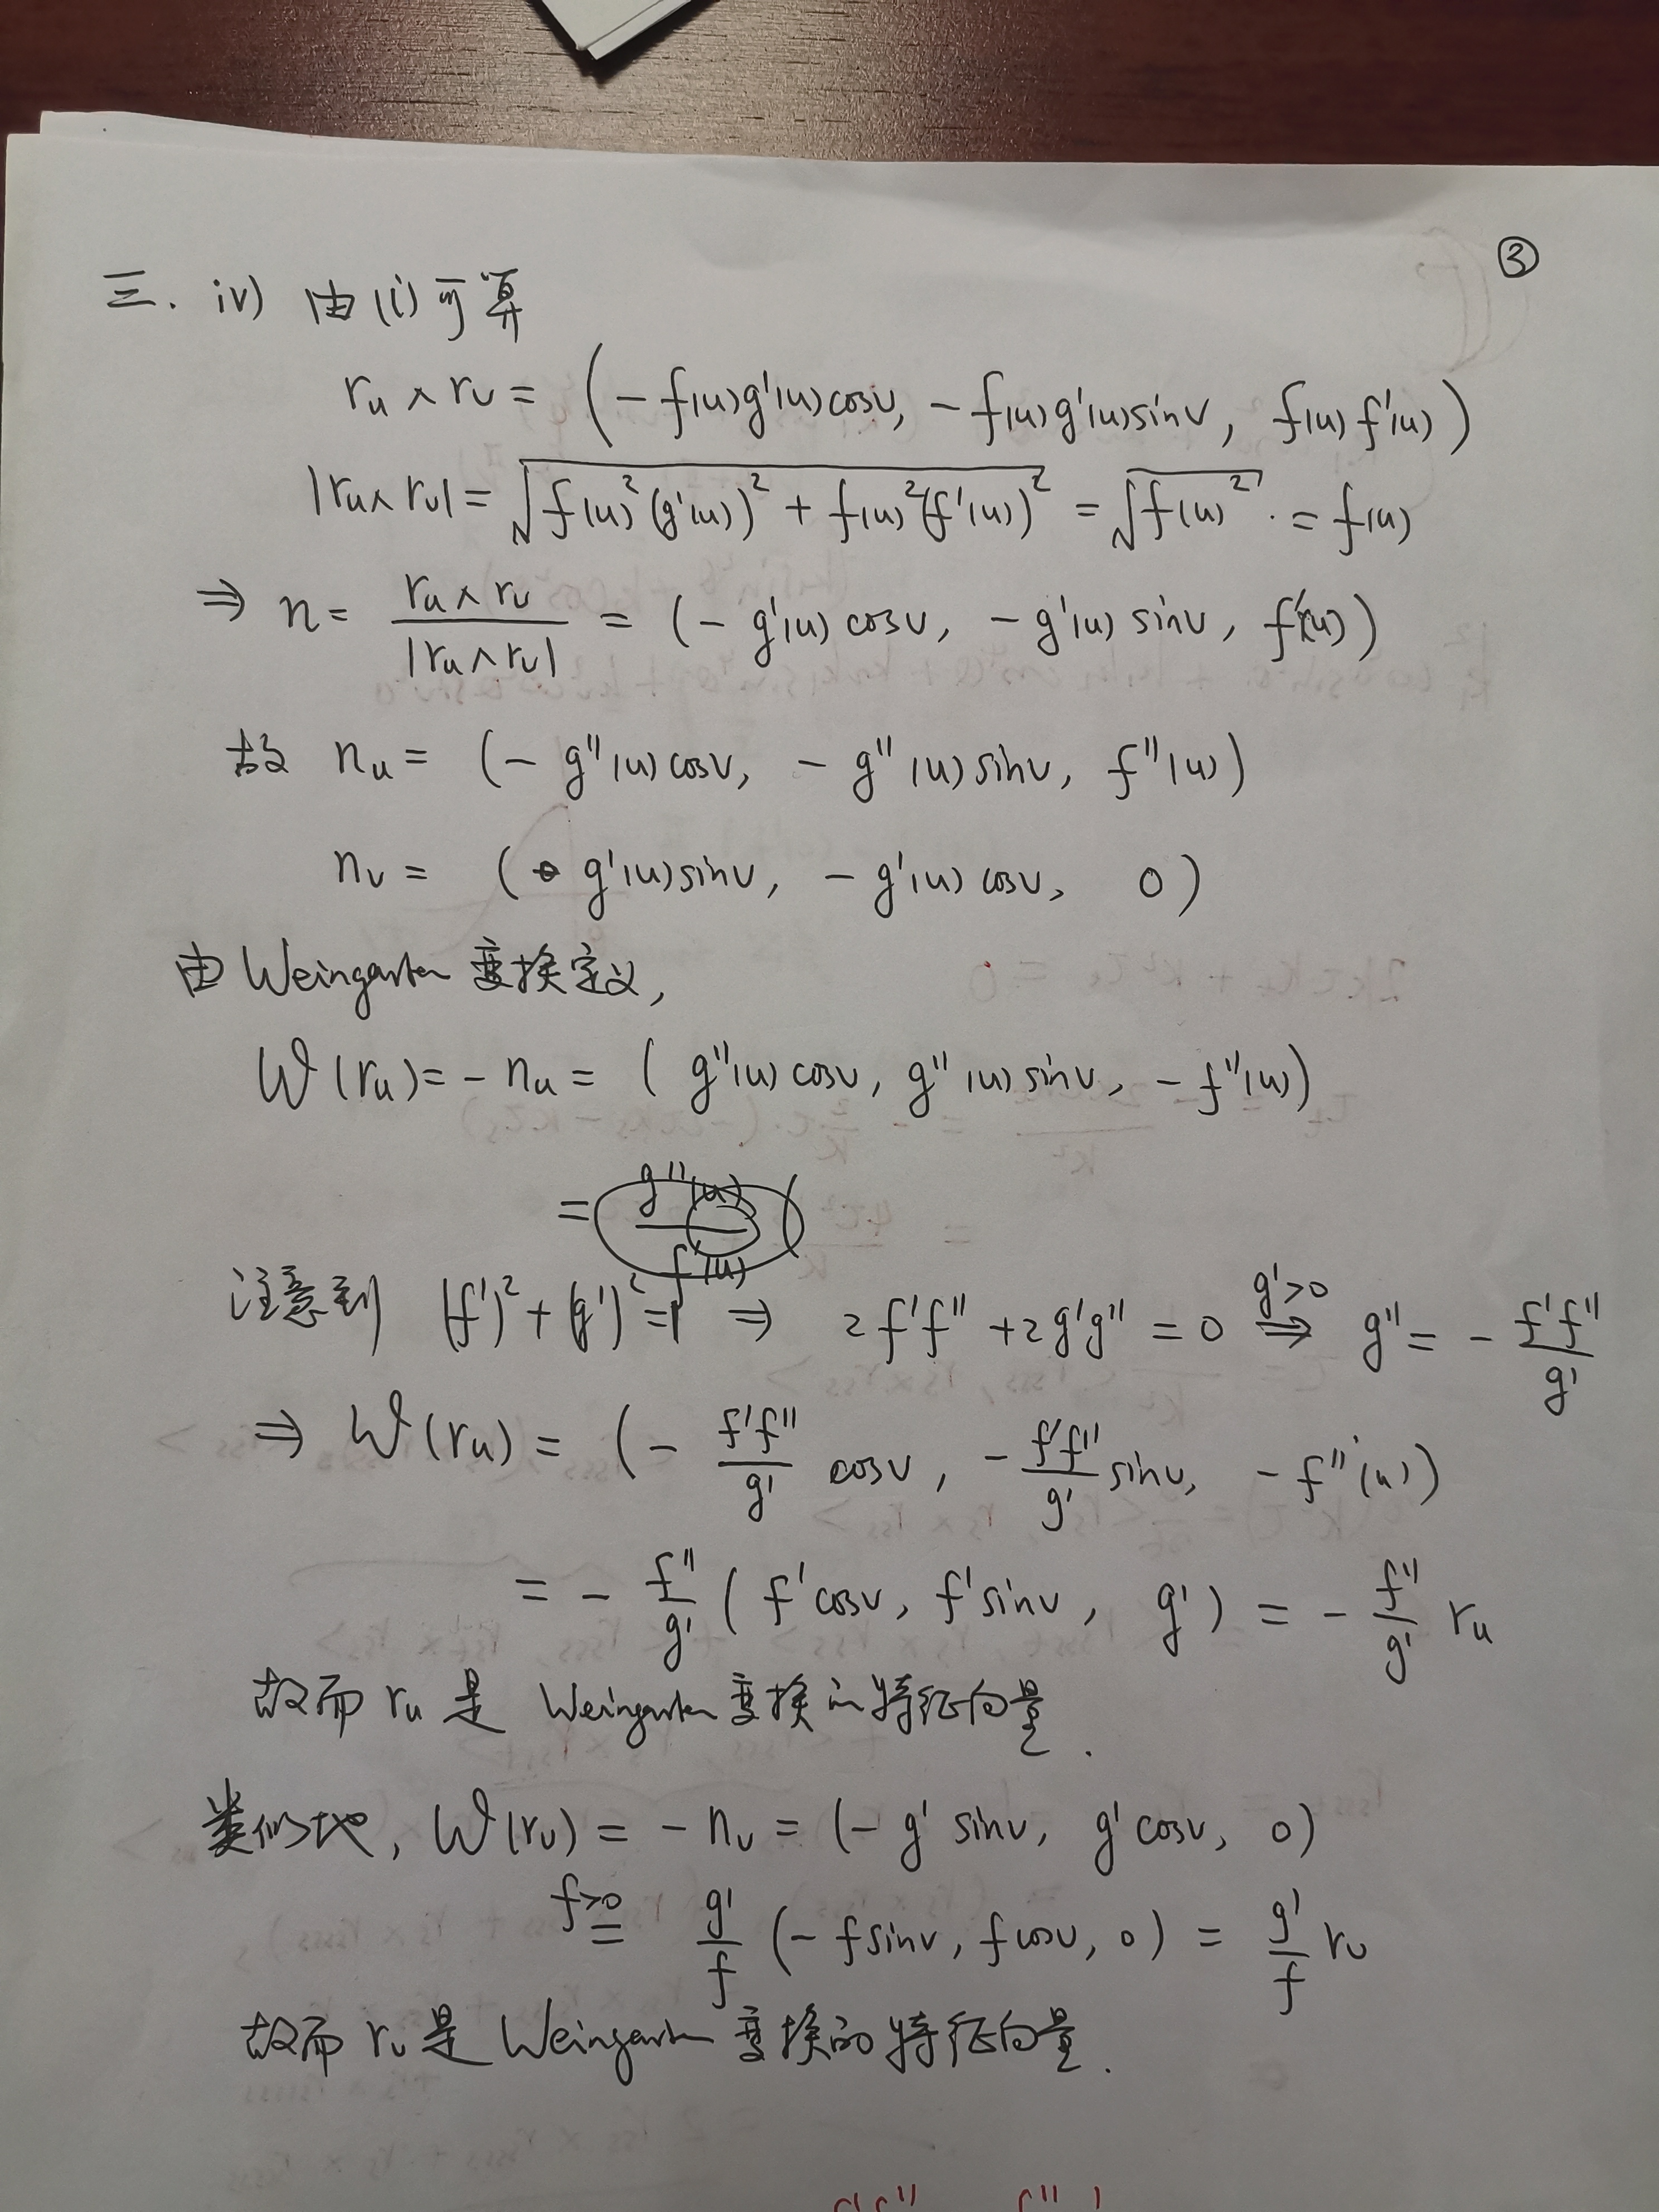 ③
三. iv) 由(i)可算
r_u ∧ r_v = (-f(u)g'(u)cosv, -f(u)g'(u)sinv, f(u)f'(u))
|r_u∧r_v| = √(f(u)²(g'(u))² + f(u)²(f'(u))²) = √(f(u)²) . = f(u)
⇒ n = (r_u∧r_v)/|r_u∧r_v| = (-g'(u)cosv, -g'(u)sinv, f'(u))
故 n_u = (-g''(u)cosv, -g''(u)sinv, f''(u))
n_v = (g'(u)sinv, -g'(u)cosv, 0)
由Weingarten变换定义,
W(r_u) = -n_u = (g''(u)cosv, g''(u)sinv, -f''(u))
= g''(u)/f'(u) (
注意到 (f')²+(g')²=1 ⇒ 2f'f''+2g'g''=0 ⇒(g'>0) g''= -f'f''/g'
⇒ W(r_u) = (-f'f''/g' cosv, -f'f''/g' sinv, -f''(u))
= -f''/g' (f'cosv, f'sinv, g') = -f''/g' r_u
故而r_u是Weingarten变换的特征向量.
类似地, W(r_v) = -n_v = (-g'sinv, g'cosv, 0)
=(f>0) g'/f (-fsinv, fcosv, 0) = g'/f r_v
故而r_v是Weingarten变换的特征向量.